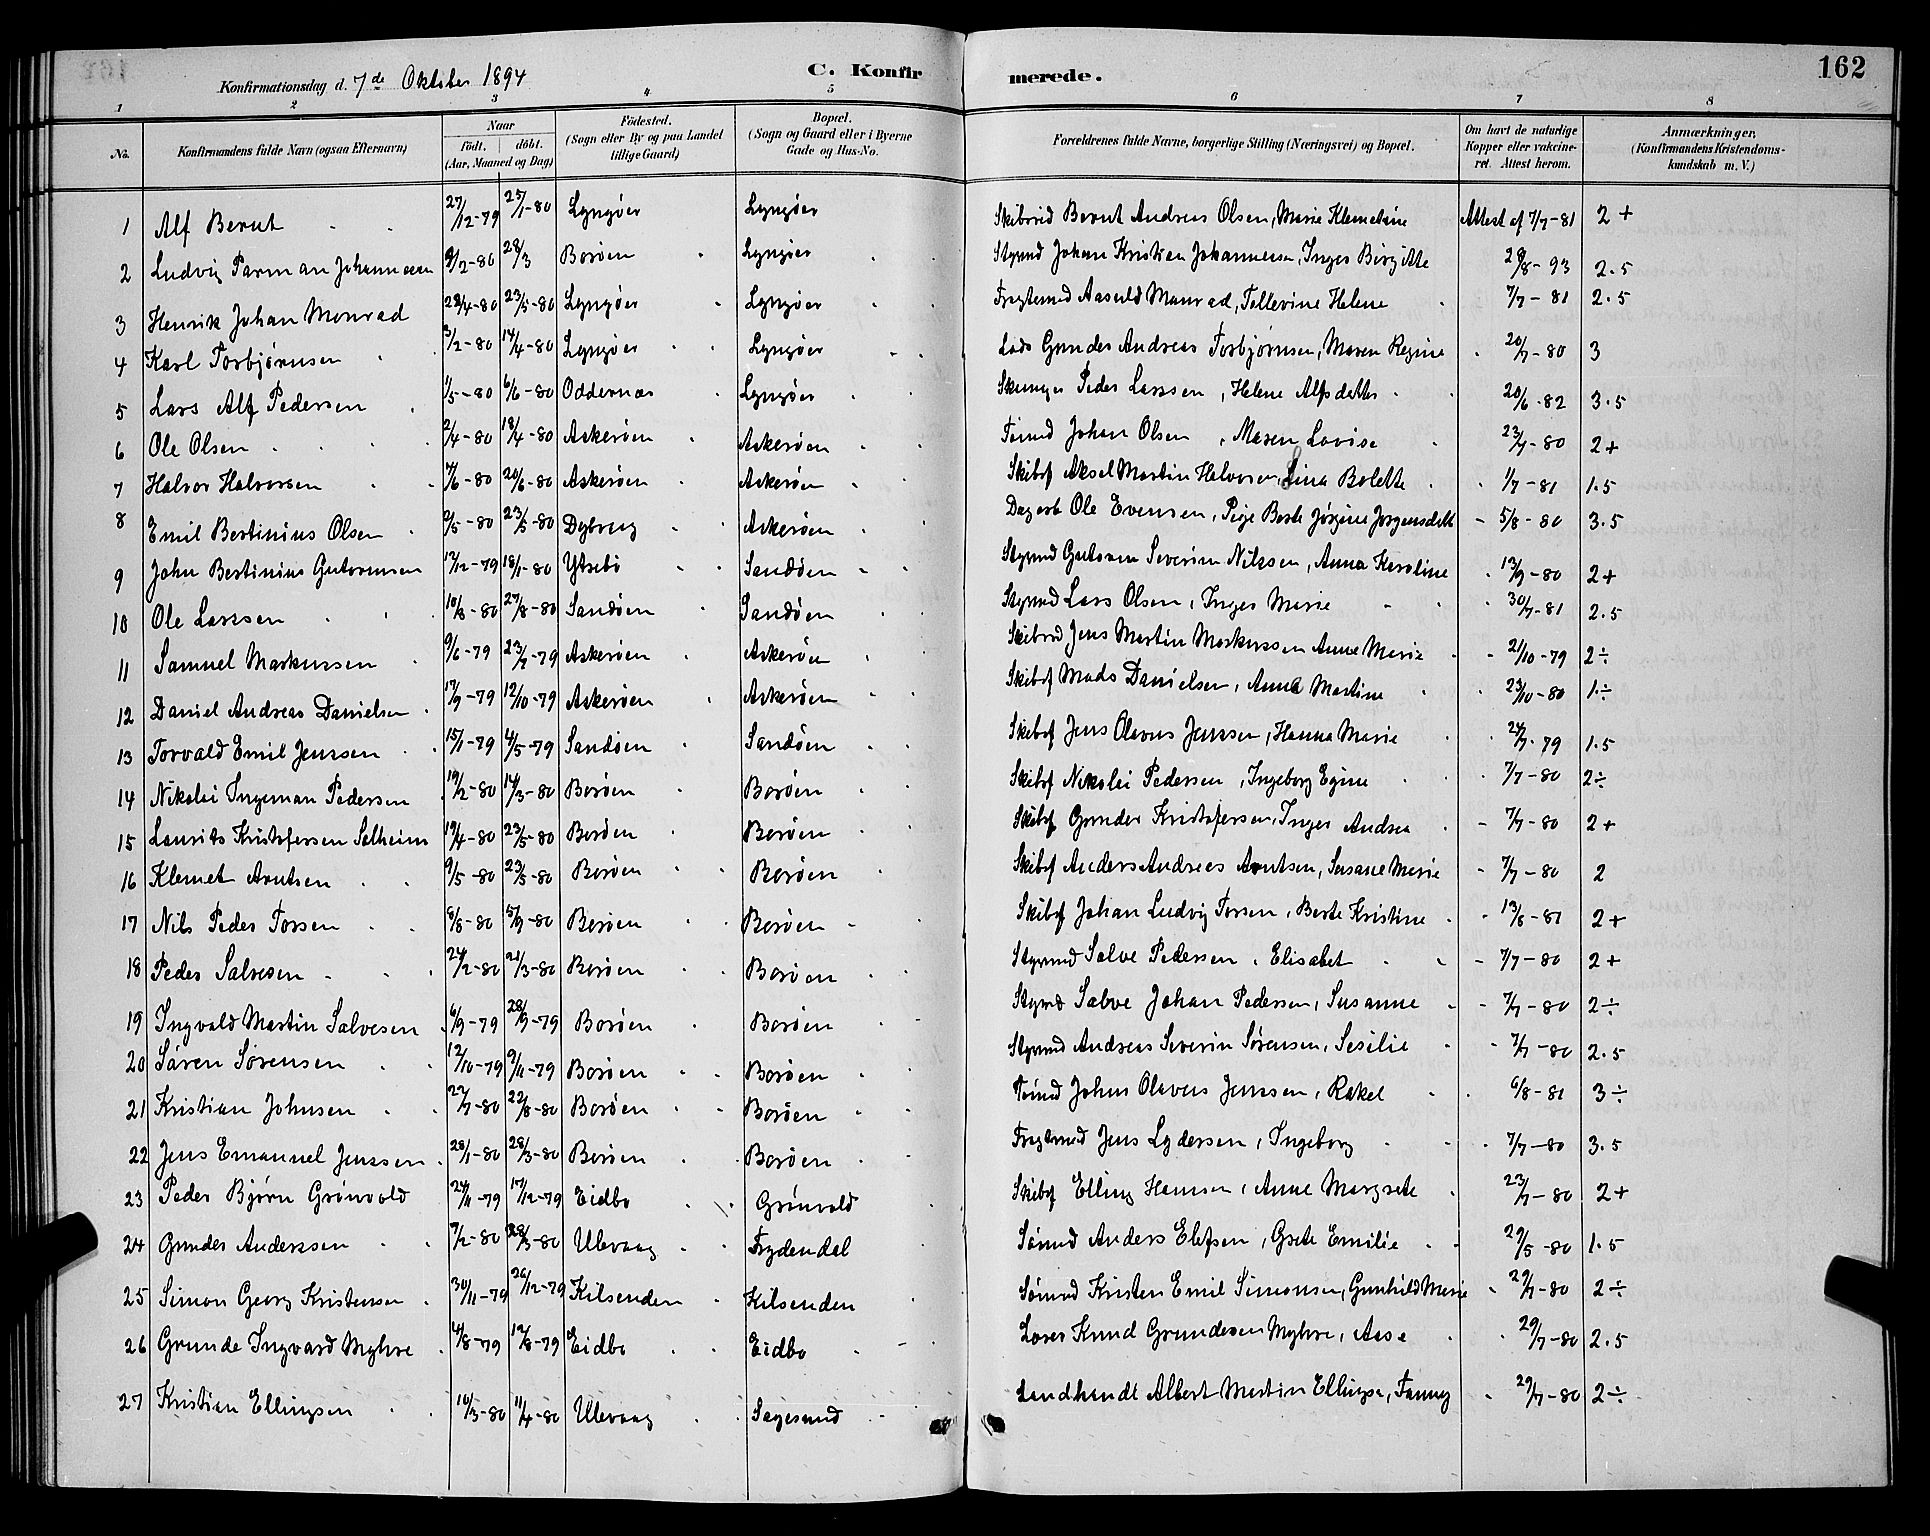 162
Konfirmationsdag d. 7de Oktober 1894 C. Konfirmerede.
1 2 3 4 5 6 7 8
No. Konfirmandens fulde Navn (ogsaa Efternavn) Naar födt. döbt. (Aar, Maaned og Dag) Födested. (Sogn eller By og paa Landet tillige Gaard) Bopæl. (Sogn og Gaard eller i Byerne Gade og Hus-No. Forældrenes fulde Navne, borgerlige Stilling (Næringsvei) og Bopæl. Om havt de naturlige Kopper eller vakcineret. Attest herom. Anmærkninger, (Konfirmandens Kristendomskundskab m. V.)
1 Alf Berut 27/12-79 25/1-80 Lyngöer Lyngöer Skibsrid Berut Andreas Olsen, Marie Klemetine Attest af 7/7-81 2+
2 Ludvig Parman Johannesen 9/2-80 28/3 Borøen Lyngöer Styrmd Johan Kristian Johannesen, Inger Birgitte 28/8-93 2.5
3 Henrik Johan Monrad 22/4-80 23/5-80 Lyngöer Lyngöer Fragtemd Aasuld Monrad, Tellevine Helene 7/7-81 2.5
4 Karl Torbjörnsen 3/2-80 14/4-80 Lyngöer Lyngöer Lods Gunder Andreas Torbjörnsen, Maren Regine 20/7-80 3
5 Lars Alf Pedersen 1/5-80 6/6-80 Oddernæs Lyngöer Peder Larssen, Helene Alfsdatter 20/6-82 3.5
6 Ole Olsen 2/4-80 18/4-80 Askerøen Askerøen Sömd Johan Olsen, Maren Lovise 23/7-80 2+
7 Halvor Halvorsen 7/6-80 20/6-80 Askerøen Askerøen Skibsf Aksel Martin Halvorsen, Lina Bolette 1/7-81 1.5
8 Emil Bertinius Olsen 9/5-80 23/5-80 Dybvaag Askerøen Dagarb Ole Evensen, Pige Berte Jörgine Jörgensdatt 5/8-80 3.5
9 John Bertinius Gutormsen 13/12-79 18/1-80 Ytrebö Sandøen Styrmd Gutorm Severin Nilssen, Anna Karoline 13/9-80 2+
10 Ole Larssen 10/8-80 27/8-80 Sandøen Sandøen Styrmd Lars Olsen, Inger Marie 30/7-81 2.5
11 Samuel Markussen 9/6-79 23/7-79 Askerøen Askerøen Skibsrd Jens Martin Markussen Anne Marie 21/10-79 2÷
12 Daniel Andreas Danielsen 17/9-79 12/10-79 Askerøen Askerøen Skibsf Mads Danielsen, Anna Martine 23/10-80 1÷
13 Torvald Emil Jenssen 15/1-79 4/5-79 Sandøen Sandøen Skibsf Jens Olavus Jenssen, Hanna Marie 24/7-79 1.5
14 Nikolai Ingeman Pedersen 19/2-80 14/3-80 Borøen Borøen Skibsf Nikolai Pedersen, Ingeborg Egine 7/7-80 2÷
15 Laurits Kristofersen Solheim 19/4-80 23/5-80 Borøen Borøen Skibsf Gunder Kristofersen, Inger Andrea 7/7-80 2+
16 Klemet Arntsen 9/5-80 23/5-80 Borøen Borøen Skibsf Anders Andreas Arntsen, Susane Marie 7/7-80 2
17 Nils Peder Torsen 8/8-80 5/9-80 Borøen Borøen Skibsf Johan Ludvig Torsen, Berte Kristine 13/8-81 2+
18 Peder Salvesen 24/2-80 21/3-80 Borøen Borøen Styrmd Salve Pedersen, Elisabet 7/7-80 2+
19 Ingvald Martin Salvesen 6/9-79 28/9-79 Borøen Borøen Styrmd Salve Johan Pedersen, Susanne 7/7-80 2÷
20 Sören Sörensen 12/10-79 9/11-79 Borøen Borøen Styrmd Andreas Severin Sörensen, Sesilie 7/7-80 2.5
21 Kristian Johnsen 27/7-80 22/8-80 Borøen Borøen Tömd Johan Olavus Jenssen, Rakel 6/8-81 3÷
22 Jens Emanuel Jenssen 28/1-80 28/3-80 Borøen Borøen Fragtemd Jens Lydersen, Ingeborg 7/7-80 3.5
23 Peder Björn Grönvold 24/11-79 17/12-79 Eidbo Grönvold Skibsf Elling Hansen, Anne Margrete 23/7-80 2+
24 Gunder Anderssen 7/2-80 28/3-80 Ulevaag Frydendal Sömd Anders Elefsen, Grete Emilie 29/5-80 1.5
25 Simon Georg Kristensen 30/11-79 26/12-79 Kilsenden Kilsenden Sömd Kristen Emil Simonsen, Gunhild Marie 29/7-80 2÷
26 Grunde Ingvard Myhre 4/8-79 17/8-79 Eidbo Eidbo Knud Grundesen Myhre, Aase 29/7-80 2.5
27 Kristian Ellingsen 10/3-80 11/4-80 Ulevaag Sagesund Landhandl Albert Martin Ellingse, Fanny 29/7-80 2÷